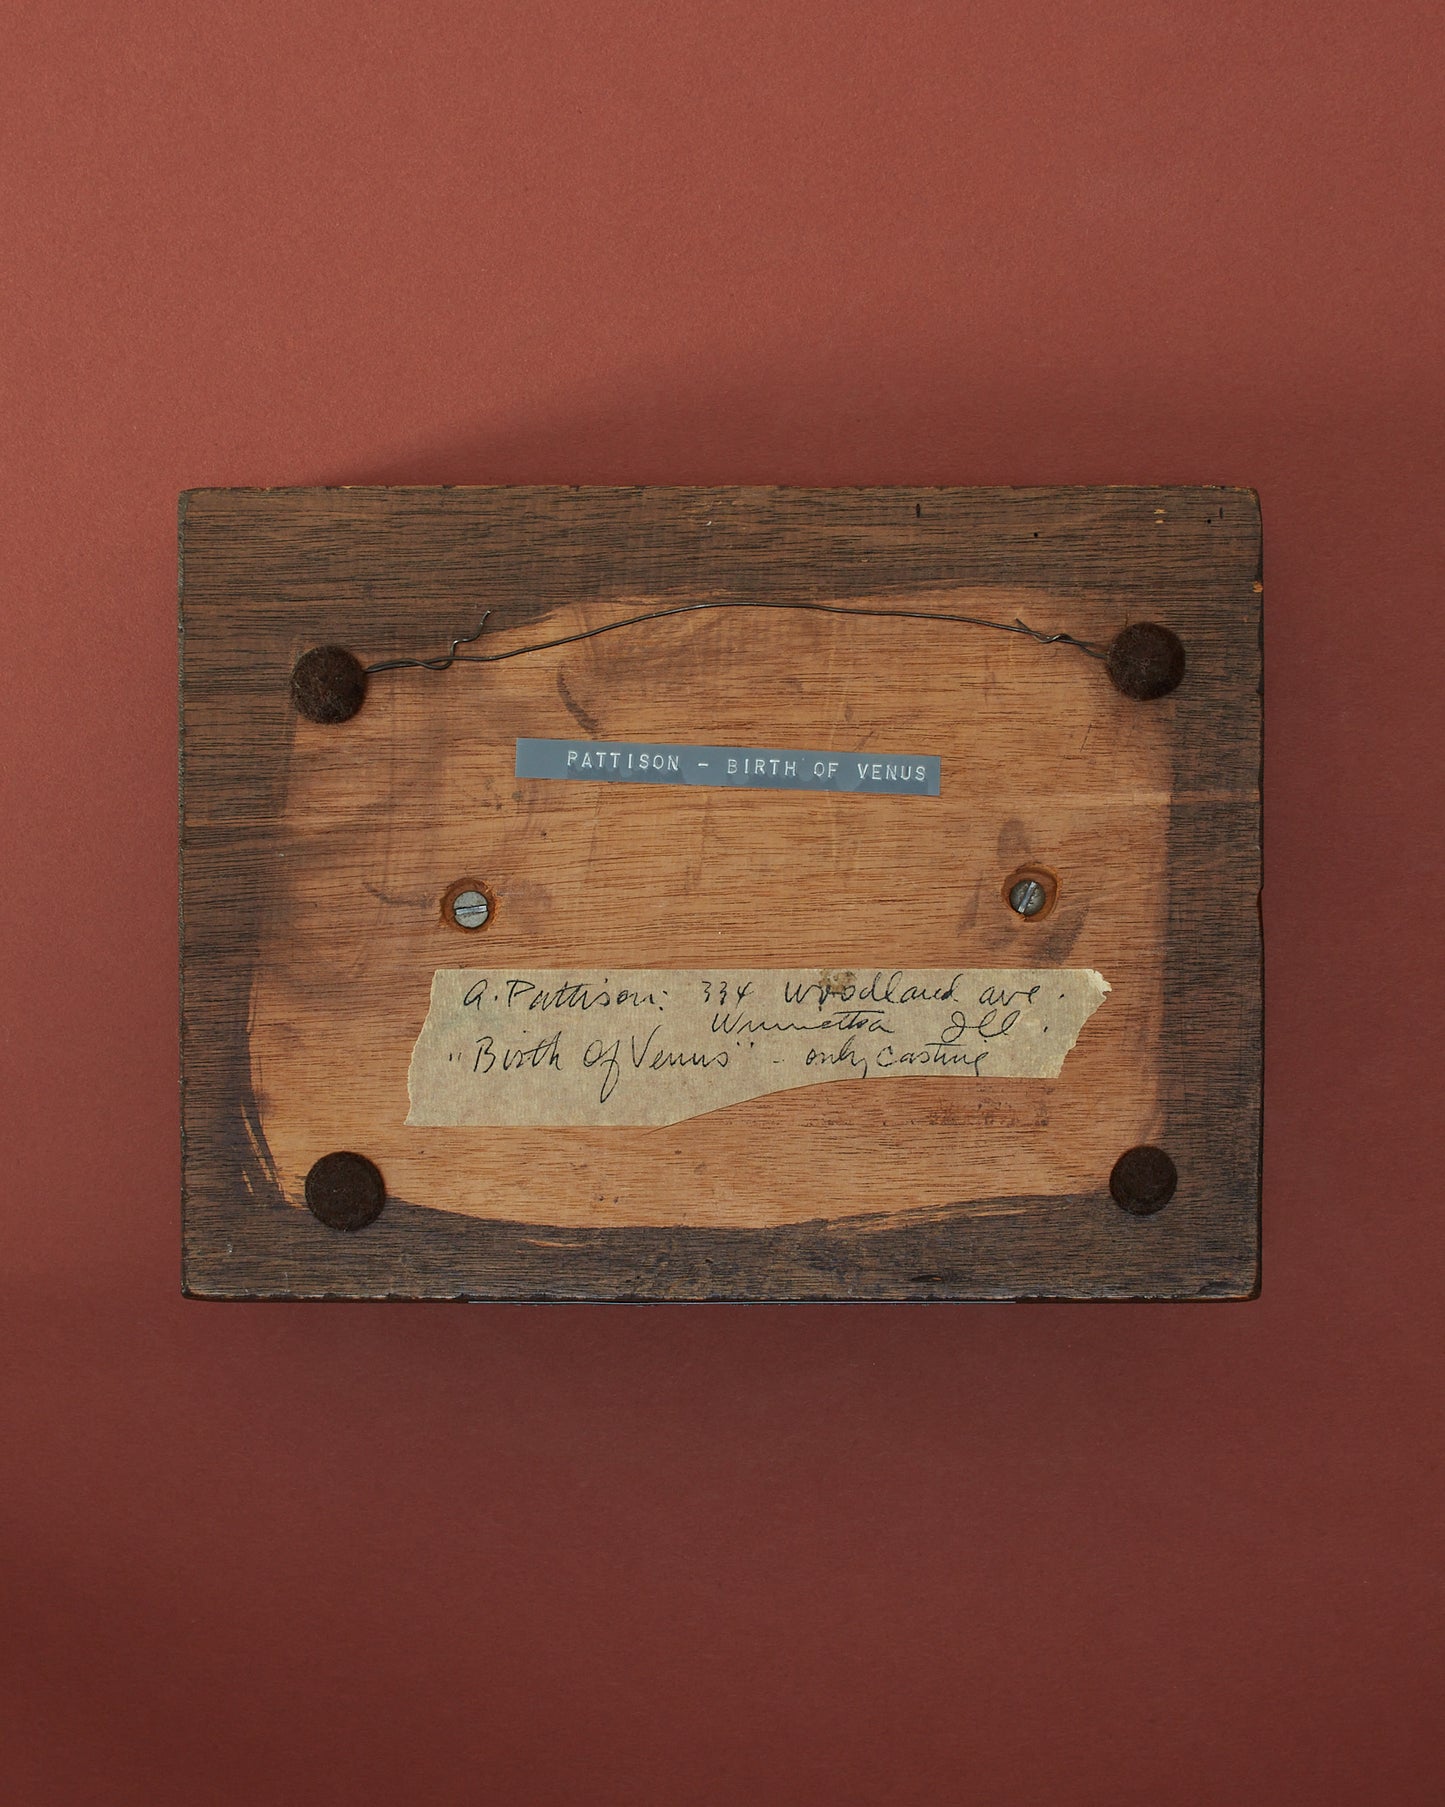 PATTISON - BIRTH OF VENUS
A. Pattison: 334 Woodland ave.
Winnetka Ill.
"Birth Of Venus" - only casting